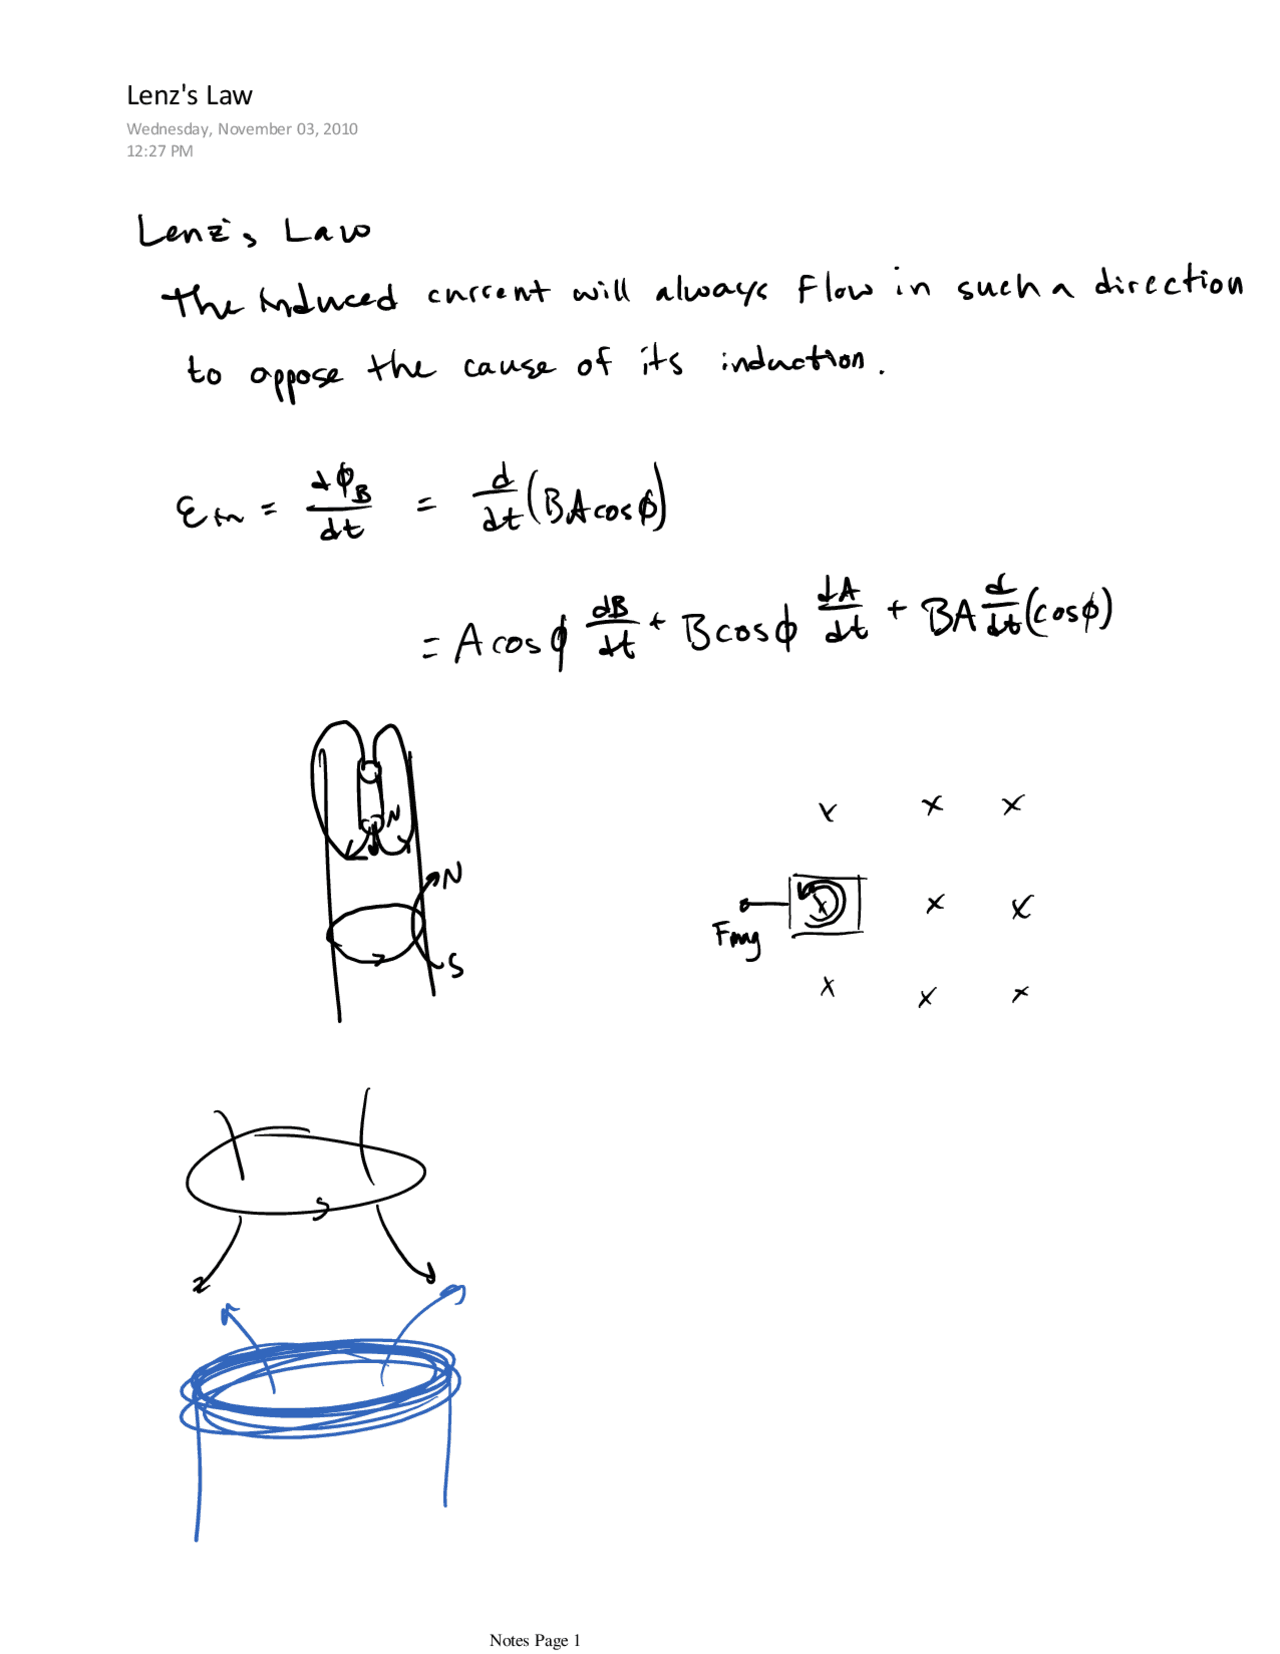 Lenz's Law
Wednesday, November 03, 2010
12:27 PM
Lenz's Law
The induced current will always Flow in such a direction
to oppose the cause of its induction.
Ein = dϕB/dt = d/dt (BA cos ϕ)
= A cos ϕ dB/dt + B cos ϕ dA/dt + BA d/dt (cos ϕ)
N
N
S
x x x
x x x
Fmg
x x x
Notes Page 1